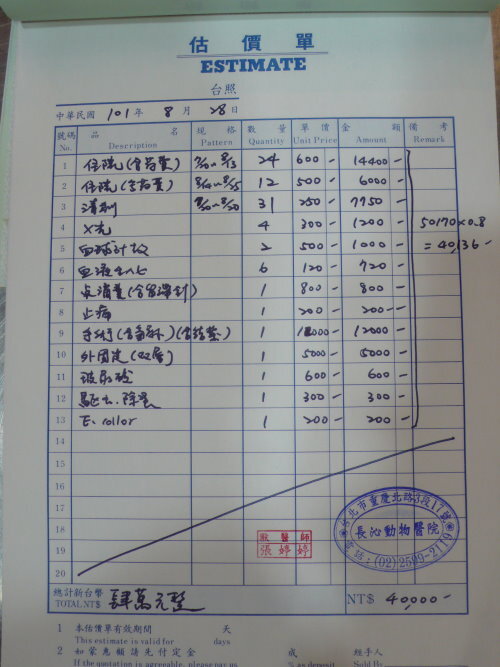 估價單
ESTIMATE
台照
中華民國 101 年 8 月 28 日
號碼 品名 規格 數量 單價 金額 備考
No. Description Pattern Quantity Unit Price Amount Remark
1 住院(含药費) 7/20~8/13 24 600- 14400-
2 住院(含药費) 8/14~8/25 12 500 6000-
3 清創 31 250 7750-
4 X光 4 300 1200- 50170x0.8
5 血球計數 2 500- 1000- =40136-
6 血液生化 6 120- 720-
7 1 800- 800-
8 止痛 1 200- 200-
9 手術 1 12000- 12000-
10 外固定 1 5000- 5000-
11 玻尿酸 1 600- 600-
12 1 300- 300-
13 E. collar 1 200- 200-
14
15
16
17
18
19
20
台北市重慶北路3段17號
長沁動物醫院
電話:(02)2599-2119
獸醫師
張婷婷
總計新台幣 肆萬元整
TOTAL NT$ NT$ 40,000-
1 本估價單有效期間 天
This estimate is valid for days
2 如蒙惠顧請先付定金 成 經手人
If the quotation is agreeable, please pay us % as deposit